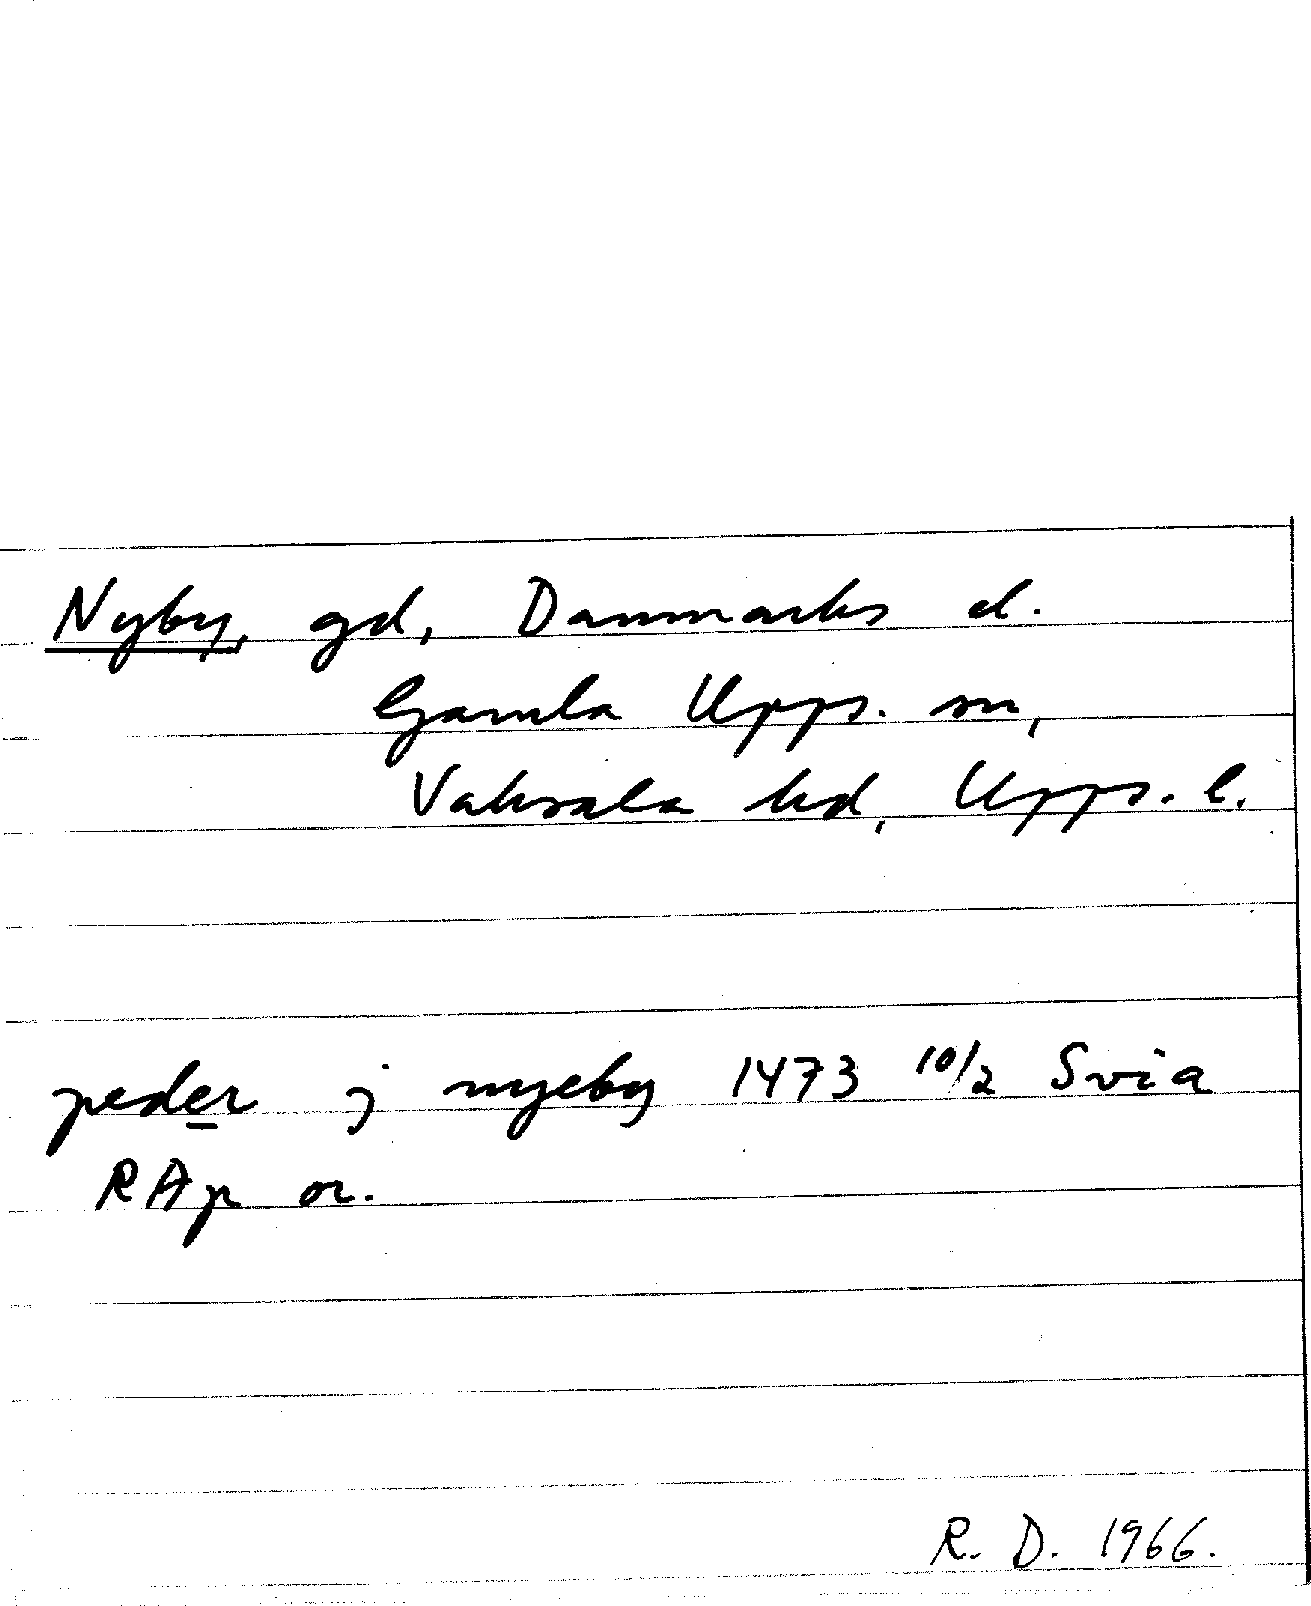 Nyby, gd, Danmarks d.
Gamla Upps. sn,
Vaksala hd, Upps. l.
peder j nyeby 1473 10/2 Svia
RAp or.
R. D. 1966.